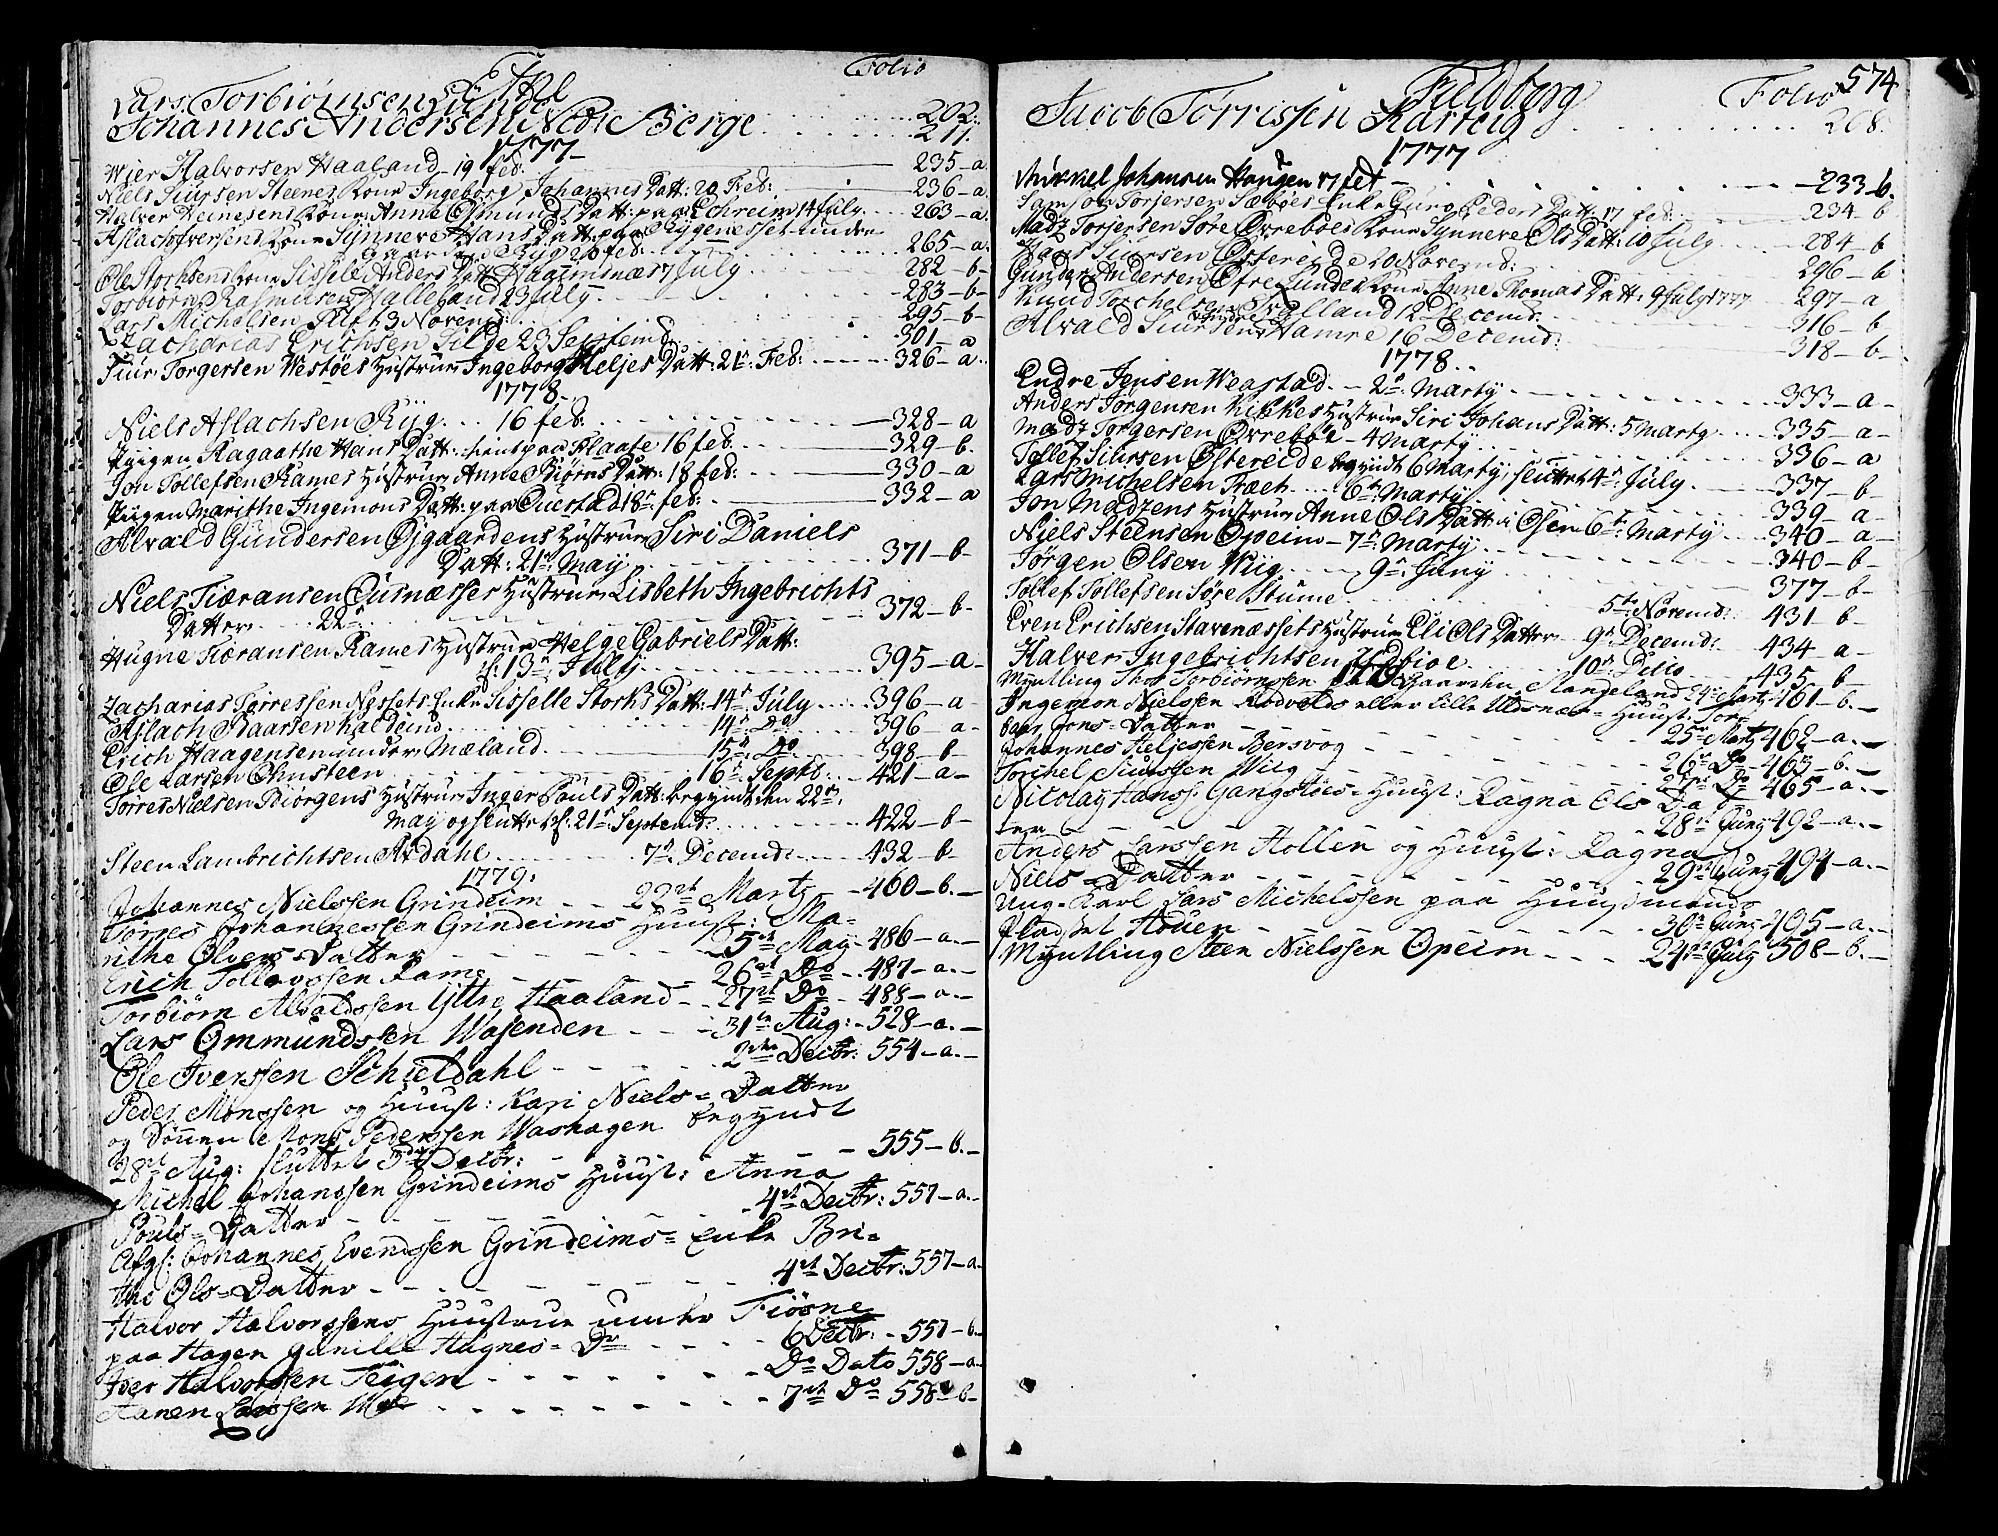 Etne
Folio
Lars Torbiørnsen Lunde 202.
Johannes Andersen Nedr Berge 211.
1777
Wier Halvorsen Haaland 19 feb. 235-a
Niels Siursen Steenes Kone Ingeborg Johannes Datt: 20 Feb: 236-a
Halver Heinesens Kone Anne Osmunds Datt: paa Schreim 14 July 263-a
Aslach Iversens Kone Synneve Hans Datt: paa Rygenesset under
20 feb. 265-a.
Ole Storchsens Kone Sissele Anders Datt 7 July 282-b-
Torbiørn Rasmusen Halleland 23 July 283-b-
Lars Michelsen 13 Novemb: 295-b-
Zacharias Erichsen Silde 23 Septemb. 301-a
Siur Torgersen Westøes Hustrue Ingeborg Heljes Datt: 21 Feb: 326-a.
1778.
Niels Aslachsen Ryg 16 feb. 328-a
Pyigen Ragaathe Hans Datt: tient paa Flaate 16 feb. 329-b.
Jon Tollefsen Rames Hustrue Anne Biørns Datt: 18 feb: 330-a
Pyigen Marithe Ingemons Datt: paa Questad 18 feb: 332-a
Alvald Gundersen Øigaardens Hustrue Siri Daniels
Datt: 21 May 371-b-
Niels Tiøransen Eusnæsses Hustrue Lisbeth Ingebrichts
Datter 22 372-b-
Hugne Tiøransen Rames Hustrue Helge Gabriels Datt:
d. 13 July 395-a-
Zacharias Torressen Nessets Enke Sisselle Storks Datt: 14 July 396-a
Aslach Baarsen Kaldeind 14 Do 396-a-
Erich Haagensen under Mæland 15 Do 398-b-
Ole Larsen Ornsteen 16 Septb: 421-a-
Torres Nielsen Biørgens Hustrue Inger Pauls Datt: begyndt den 22
May og sluttet d. 21 Septemb: 422-b-
Steen Lambrichtsen Ardahl 7 Decemb: 432-b-
1779:
Johannes Nielssen Grindeim 22 Martz 460-b.-
Torres Johannessen Grindeims Huust: Ma-
rithe Olvers-Datter 5 May 486-a.-
Erich Tollevssen Rame 26 Do 487-a.-
Torbiørn Alvaldssen Yttre Haaland 27 Do 488-a.-
Lars Ommundssen Wasenden 31 Aug: 528-a.-
Ole Iverssen Schieldahl 2 Decbr: 554-a.-
Peder Monssen og Huust: Kari Niels-Datter
og Sønnen Mons Pederssen Washagen begyndt
28 Aug: sluttet 3 Decbr: 555-b.-
Michel Johanssen Grindeims Huust: Anna
Pouls-Datter 4 Decbr: 557-a.-
Afg: Johannes Evendssen Grindeims Enke Bri-
the Ols-Datter 4 Decbr: 557-a-
Halvor Halvorssens Huustrue under Fiøsne
paa Hagen Gunille Hugnes-Dr 6 Decbr: 557-b.-
Iver Halvorssen Teigen Do Dato 558-a-
Hanen Larssen 7 Do 558-b-
Fieldberg
Folio 574
Jacob Torrissen Karteig 208.
1777
Mikkel Johansen Haugen 17 feb 233-b.
Samson Torjersen Sæbøes Enke Guro Peders Datt 17 feb: 234-b
Madz Torjersen Søre Øvrebøes Kone Synneve Ols Datt: 10 July 284-b
Siursen Østereide 20 Novemb: 296-b
Gunder Andersen Øfre Lundes Kone Anne Thomas Datt: 9 July 1777 297-a
Knud Torchelsen Tralland 12 Decemb. 316-b
Alvald Siursen Hamre 16 Decemb: 318-b-
1778.
Endre Jensen Weastad 2 Marty 333-a-
Anders Jørgensen Kikkes Hustrue Siri Johans Datt: 5 Marty 335-a-
Madz Torgersen Øvrebøe 4 Marty 336-a
Tollef Siursen Østereide begyndt 6 Marty, sluttet 4 July 337-b-
Lars Michelsen Træet 6 Marty 339-a-
Jon Madzens Hustrue Anne Ols Datt: i Osen 6 Marty 340-a-
Niels Steensen Opeim 7 Marty 340-b-
Jørgen Olsen Wiig 9 Juny 377-b-
Tollef Tollefsen Søre Stumo 5 Novemb: 431-b-
Even Erichsen Stavenæssets Hustrue Eli Ols Datter 9 Decemb: 434-a-
Halver Ingebrichtsen 10 Ditto 435-b-
1779
Myntling Thor Torbiørnssen Gaarden Stangeland 24 Martz 461-b.-
Ingemon Nielssen Rodvelds eller Lille Huust: Tor-
bor Jons-Datter 25 Martz 462-a.-
Johannes Heljessen Bersvog 26 Do 463-b.-
Torchel Siurssen Wiig 27 Do 465-a.-
Nicolay Hanss: Gangstøes Huust: Ragna Ols Da
ter 28 Juny 492-a.-
Anders Larssen Hollen og Huust: Ragna
Niels-Datter 29 Juny 494-a.-
Ung-Karl Lars Michelssen paa Huusmands
Pladset Houen 30 Juny 495-a.-
Myntling Steen Nielssen Opeim 24 July 508-b.-